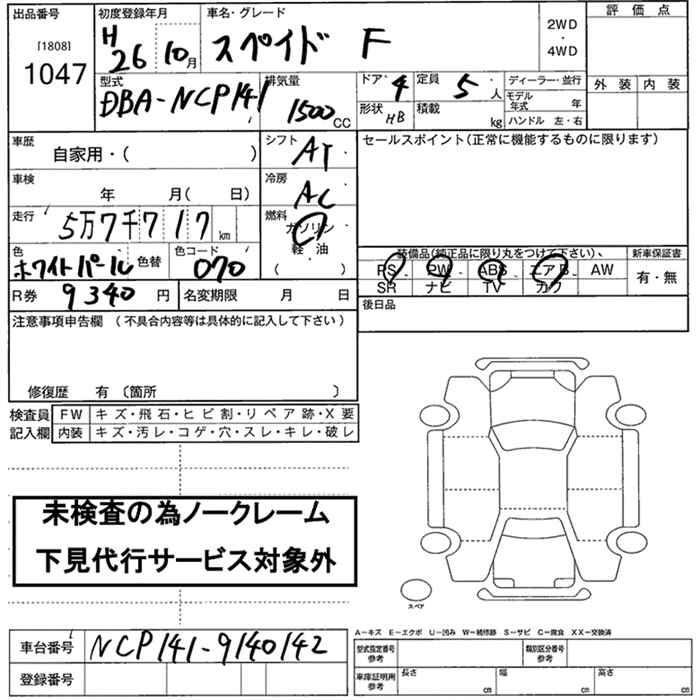 出品番号 初度登録年月 車名・グレード 評価点
[1808] 1047 H 26 10月 スペイド F 2WD・4WD
型式 排気量 ドア 4 定員 5 人 ディーラー・並行 外装 内装
DBA-NCP141 1500 CC 形状 HB 積載 kg モデル年式 年
ハンドル 左・右
車歴 自家用・( ) シフト AT セールスポイント(正常に機能するものに限ります)
車検 年 月( 日) 冷房 AC
走行 5万7千717km 燃料 ガソリン
軽・油
( )
色 ホワイトパール 色替 色コード 070 装備品(純正品に限り丸をつけて下さい)、 新車保証書
PS PW ABS エアB AW 有・無
SR ナビ TV カワ
R券 9340 円 名変期限 月 日 後日品
注意事項申告欄 (不具合内容等は具体的に記入して下さい)
修復歴 有 〔箇所 〕
検査員 FW キズ・飛石・ヒビ割・リペア跡・X要
記入欄 内装 キズ・汚レ・コゲ・穴・スレ・キレ・破レ
未検査の為ノークレーム
下見代行サービス対象外
スペア
A-キズ E-エクボ U-凹み W-補修跡 S-サビ C-腐食 XX-交換済
車台番号 NCP141-9140142 型式指定番号 参考 類別区分番号 参考
登録番号 車庫証明用 参考 長さ cm 幅 cm 高さ cm